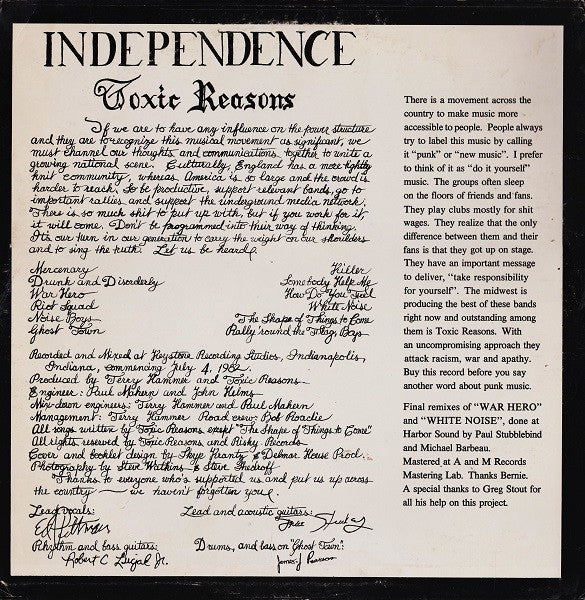 INDEPENDENCE
Toxic Reasons
If we are to have any influence on the power structure
and they are to recognize this musical movement as significant, we
must channel our thoughts and communications together to unite a
growing national scene. Culturally, England has a more tightly
knit community, whereas America is so large and the crowd is
harder to reach. To be productive, support relevant bands, go to
important rallies and support the underground media network.
There is so much shit to put up with, but if you work for it,
it will come. Don't be programmed into their way of thinking.
It's our turn in our generation to carry the weight on our shoulders
and to sing the truth. Let us be heard.
Mercenary
Drunk and Disorderly
War Hero
Riot Squad
Noise Boys
Ghost Town
Killer
Somebody Help Me
How Do You Feel
White Noise
The Shape of Things to Come
Rally 'round the Flag, Boys
Recorded and Mixed at Keystone Recording Studios, Indianapolis,
Indiana, commencing July 4, 1982
Produced by Terry Hammer and Toxic Reasons
Engineer: Paul Mahern and John Helms
Mix-down engineers: Terry Hammer and Paul Mahern
Management: Terry Hammer Road crew: Bob Roadie
All songs written by Toxic Reasons exept "The Shape of Things to Come"
All rights reserved by Toxic Reasons and Risky Records
Cover and booklet design by Skye Krantz & Delmar House Prod.
Photography by Steve Watkins & Steve
Thanks to everyone who's supported us and put us up across
the country — we haven't forgotten you!
Lead vocals:
Ed Pittman
Lead and acoustic guitars:
Rhythm and bass guitars:
Robert C Lugal Jr.
Drums, and bass on "Ghost Town":
James J Pearson
There is a movement across the
country to make music more
accessible to people. People always
try to label this music by calling
it "punk" or "new music". I prefer
to think of it as "do it yourself"
music. The groups often sleep
on the floors of friends and fans.
They play clubs mostly for shit
wages. They realize that the only
difference between them and their
fans is that they got up on stage.
They have an important message
to deliver, "take responsibility
for yourself". The midwest is
producing the best of these bands
right now and outstanding among
them is Toxic Reasons. With
an uncompromising approach they
attack racism, war and apathy.
Buy this record before you say
another word about punk music.
Final remixes of "WAR HERO"
and "WHITE NOISE", done at
Harbor Sound by Paul Stubblebind
and Michael Barbeau.
Mastered at A and M Records
Mastering Lab. Thanks Bernie.
A special thanks to Greg Stout for
all his help on this project.